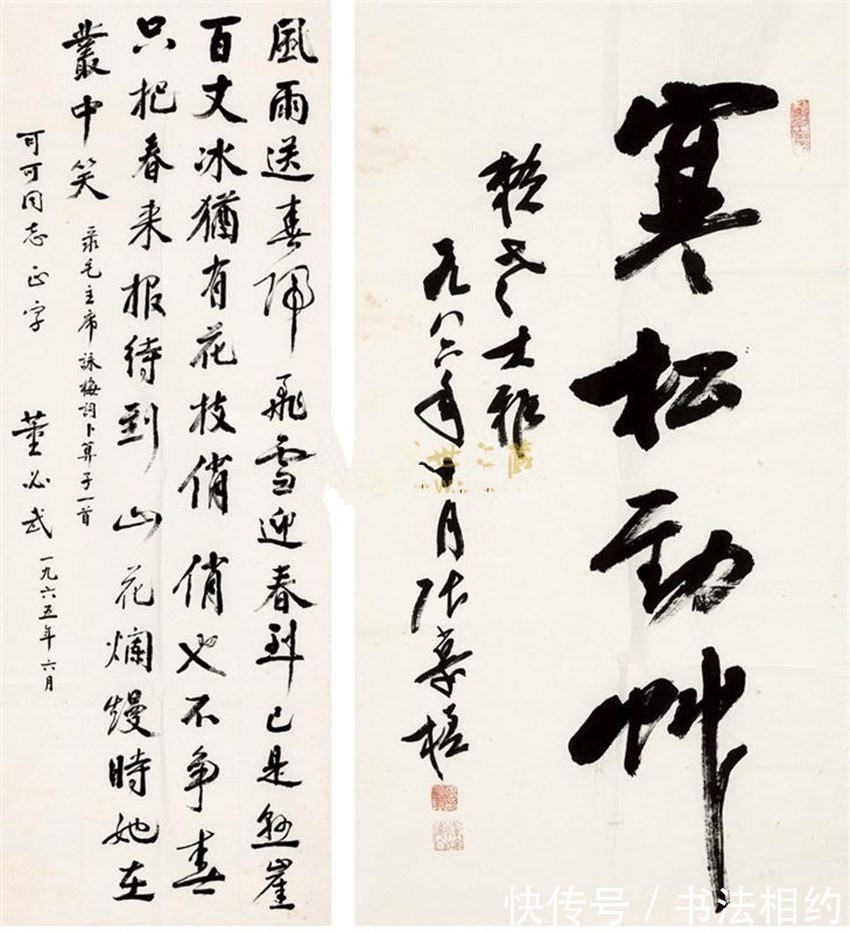 風雨送春歸飛雪迎春到已是懸崖
百丈冰猶有花枝俏俏也不争春
只把春来报待到山花爛熳時她在
叢中笑
录毛主席詠梅詞卜算子一首
可可同志正字 董必武 一九六五年六月
寒松劲艸
大雅
年十月张慕槎
快传号 / 书法相约